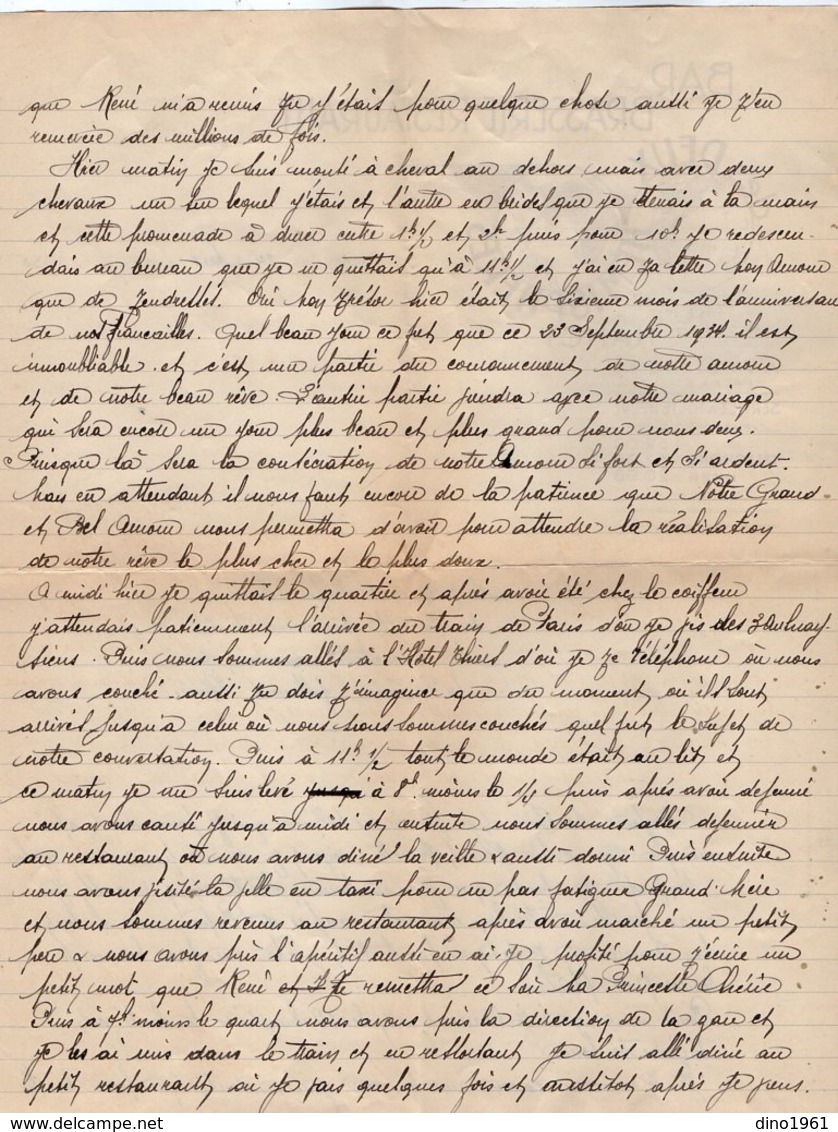 que René m'a remis tu y était pour quelque chose aussi je t'en
remercie des millions de fois.
Hier matin je suis monté à cheval au dehors mais avec deux
chevaux un sur lequel j'étais et l'autre en bridel que je tenais à la main
et cette promenade à durer entre 1h 1/2 et 2h puis pour 10h je redescen-
dais au bureau que je ne quittais qu'à 11h 1/2 et j'ai eu ta lettre mon Amour
que de tendresses. Oui mon trésor hier était le sixieme mois de l'anniversai
de nos Fiancailles. Quel beau jour ce fut que ce 23 Septembre 1934. il est
innoubliable. et c'est une partie du couronnement de notre amour
et de notre beau rêve. L'autre partie viendra avec notre mariage
qui sera encore un jour plus beau et plus grand pour nous deux.
Puisque là sera la consécration de notre Amour si fort et si ardent.
Mais en attendant il nous faut encore de la patience que Notre Grand-
et Bel Amour nous permettra d'avoir pour attendre la réalisation
de notre rêve le plus cher et le plus doux.
A midi hier je quittais le quartier et après avoir été chez le coiffeur
j'attendais patiemment l'arrivée du train de Paris d'où je vis des 3 Aulnay-
siens. Puis nous sommes allés à l'Hôtel Thiers d'où je te téléphone où nous
avons couché. aussi tu dois t'imaginer que du moment où ils sont
arrivés jusqu'à celui où nous nous sommes couchés quel fut le sujet de
notre conversation. Puis à 11h 1/2 tout le monde était au lit et
ce matin je me suis levé jusqu'à à 8h moins le 1/4 puis après avoir dejeuné
nous avons causé jusqu'à midi et ensuite nous sommes allés dejeuner
au restaurant où nous avons diné la veille & aussi dormi Puis ensuite
nous avons visité la ville en taxi pour ne pas fatiguer Grand-Mère
et nous sommes revenus au restaurant après avoir marché un petit
peu & nous avons pris l'apéritif aussi en ai-je profité pour t'écrire un
petit mot que René et te remettra ce soir Ma Princesse Chérie
Puis à 7h moins le quart nous avons pris la direction de la gare et
je les ai mis dans le train et en ressortant je suis allé diné au
petit restaurant où je vais quelques fois et aussitot après je viens.
dino1961